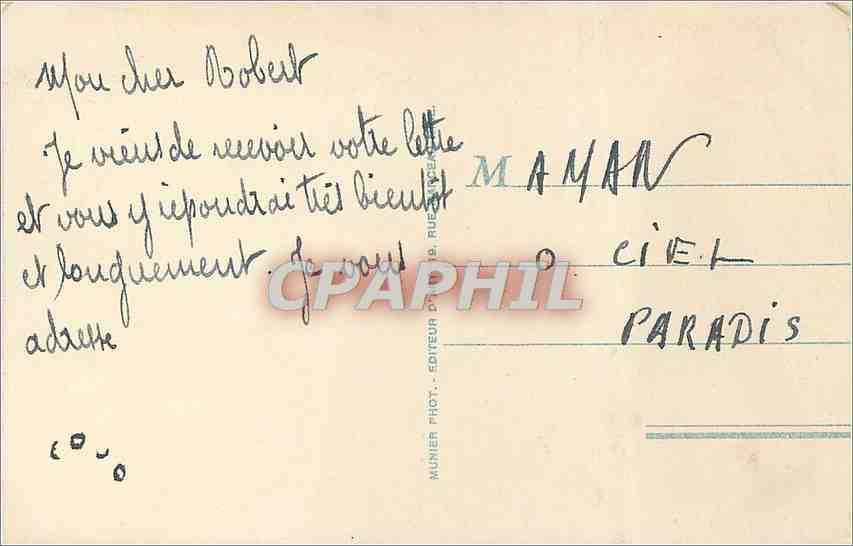 Mon cher Robert
Je viens de recevoir votre lettre
et vous y répondrai très bientôt
et longuement. Je vous
adresse
MAMAN
O CIEL
PARADIS
MUNIER PHOT. - EDITEUR D'ART 19, RUE
CPAPHIL